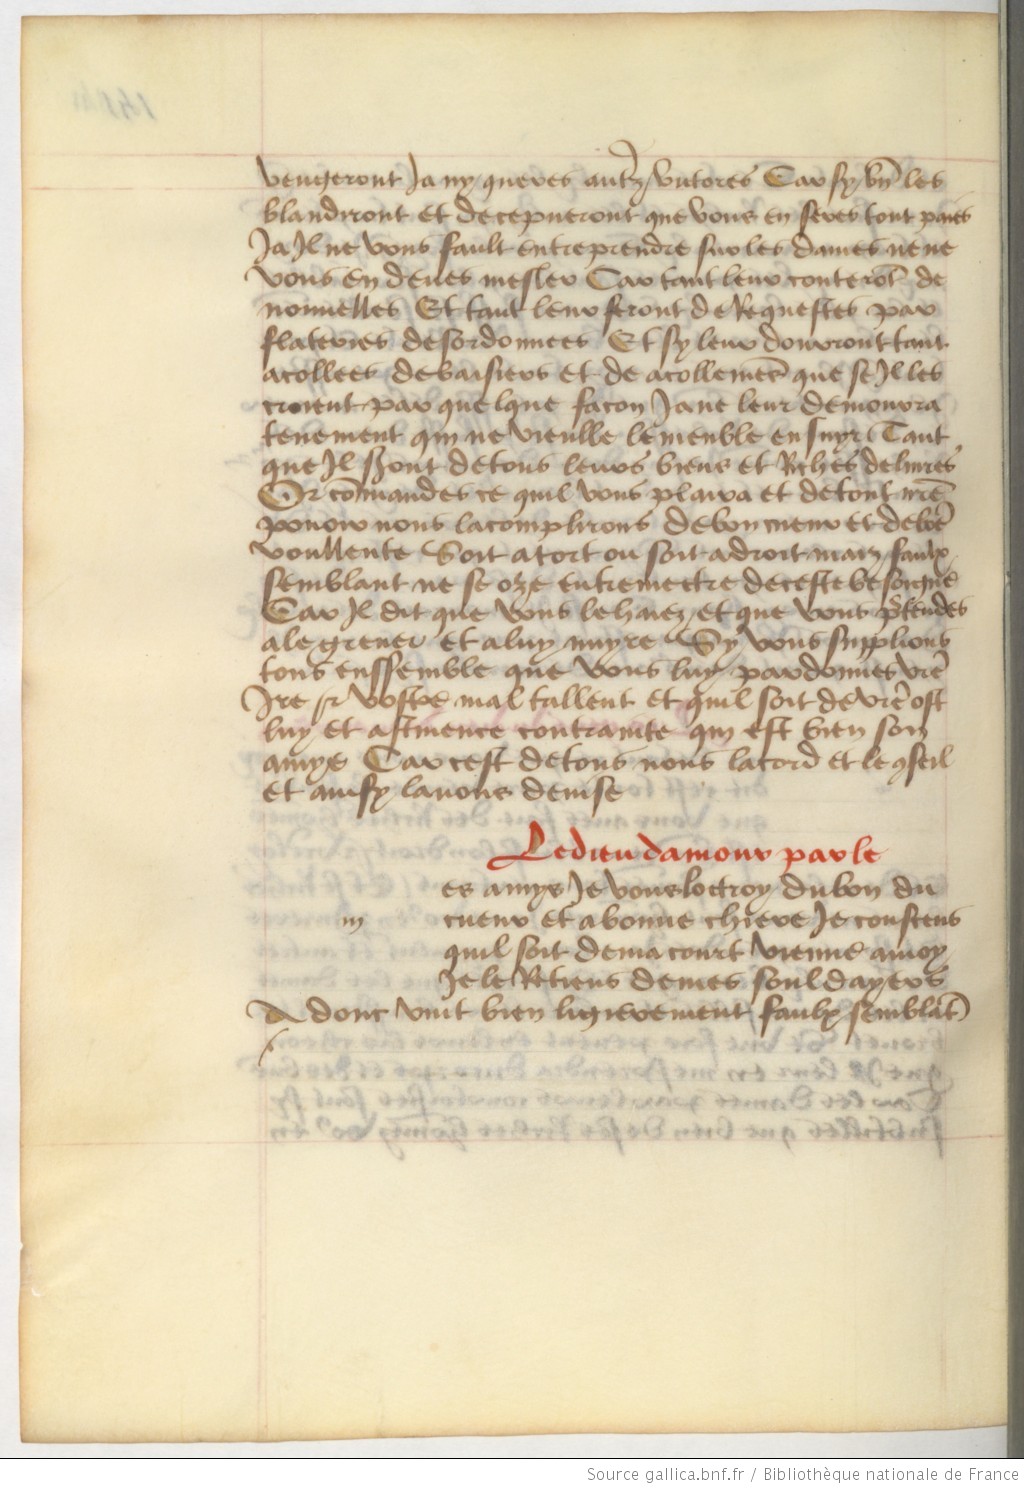 vengeront Ja ny queres autz vutores Car sy bn̄ les
blandiront et decepueront que vous en seres tout paies
Ja Il ne vous fault entreprendre sur les dames ne ne
vous en deues mesler Car tant leur conterōt de
nouuelles Et tant leur feront de Requestes par
flateries desordonnees Et sy leur donrront tant
acollees de baisiers et de acollemēt que se Il les
croient par quelque facon Ja ne leur demourra
tenement qui ne vieulle le meuble ensuyr Tant
que Il sront de tous leurs biens et Riches deliures
Or cōmandes ce quil vous plaira et de tout nrē
pouoir nous lacomplirons de bon cueur et de bōe
voullente Soit a tort ou soit a droit maiz faulx
semblant ne se oze entremectre de ceste besoigne
Car Il dit que vous le haiez et que vous p̄tendes
a le greuer et a luy nuyre Sy vous suplions
tous enssemble que vous luy pardonnes vrē
Ire et vostre mal tallent et quil soit de vrē ost
luy et astinence contrainte qui est bien son
amye Car cest de tous nous lacord et le 9seil
et ainsy lauons deuise
Le dieu damour parle
es amys Je vous loctroy du bon du
m cueur et a bonne chiere Je consens
quil soit de ma court vienne a moy
Je le Retiens de mes souldayers
A donc vint bien ligierement faulx semblāt